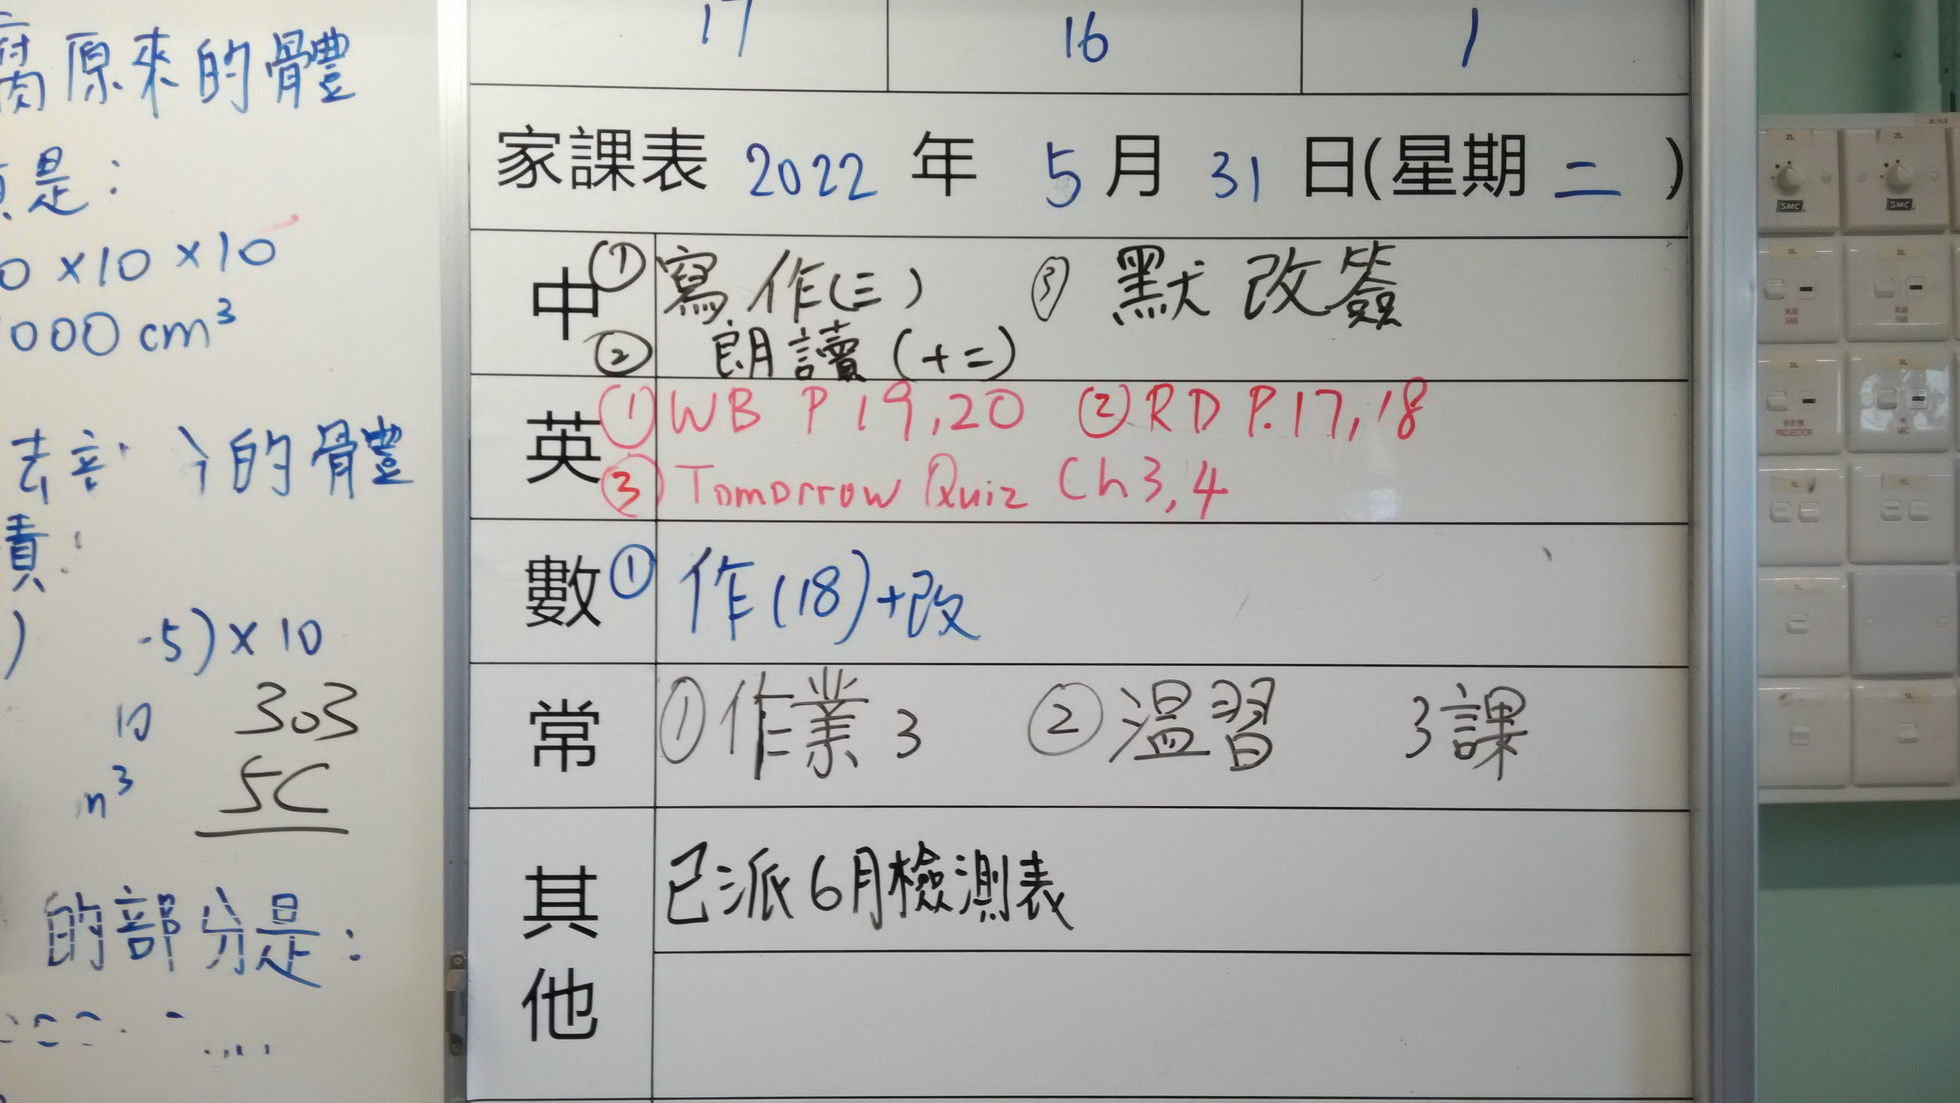 腐原來的體
是：
0×10×10
000 cm³
去 的體
責：
) -5)×10
10 303
m³ 5C
的部分是：
17 16 1
家課表 2022 年 5 月 31 日(星期 二 )
中 ① 寫作(三) ③ 默改簽
② 朗讀(十二)
英 ① WB P 19,20 ② RD P.17,18
③ Tomorrow Quiz Ch 3,4
數 ① 作(18)+改
常 ① 作業 3 ② 溫習 3課
其他 已派6月檢測表
2L 2L
SMC SMC
2L 2L
FAN FAN
PROJECTOR MIC